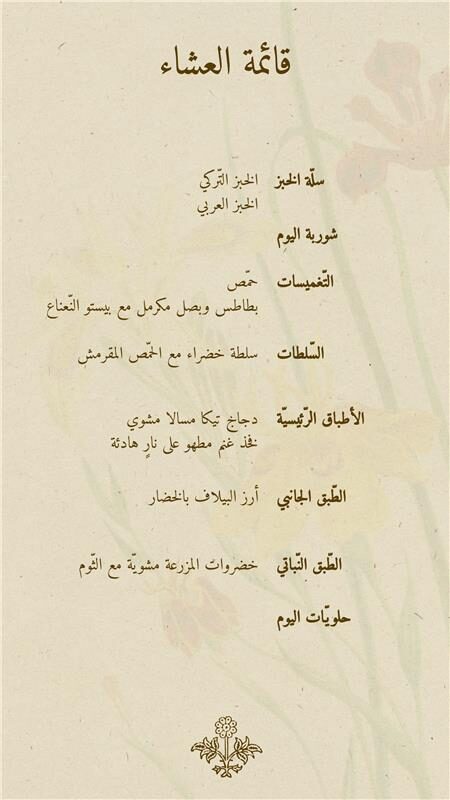 قائمة العشاء
سلّة الخبز الخبز التّركي
الخبز العربي
شوربة اليوم
التّغميسات حمّص
بطاطس وبصل مكرمل مع بيستو النّعناع
السّلطات سلطة خضراء مع الحمّص المقرمش
الأطباق الرّئيسيّة دجاج تيكا مسالا مشوي
فخذ غنم مطهو على نارٍ هادئة
الطّبق الجانبي أرز البيلاف بالخضار
الطّبق النّباتي خضروات المزرعة مشويّة مع الثّوم
حلويّات اليوم